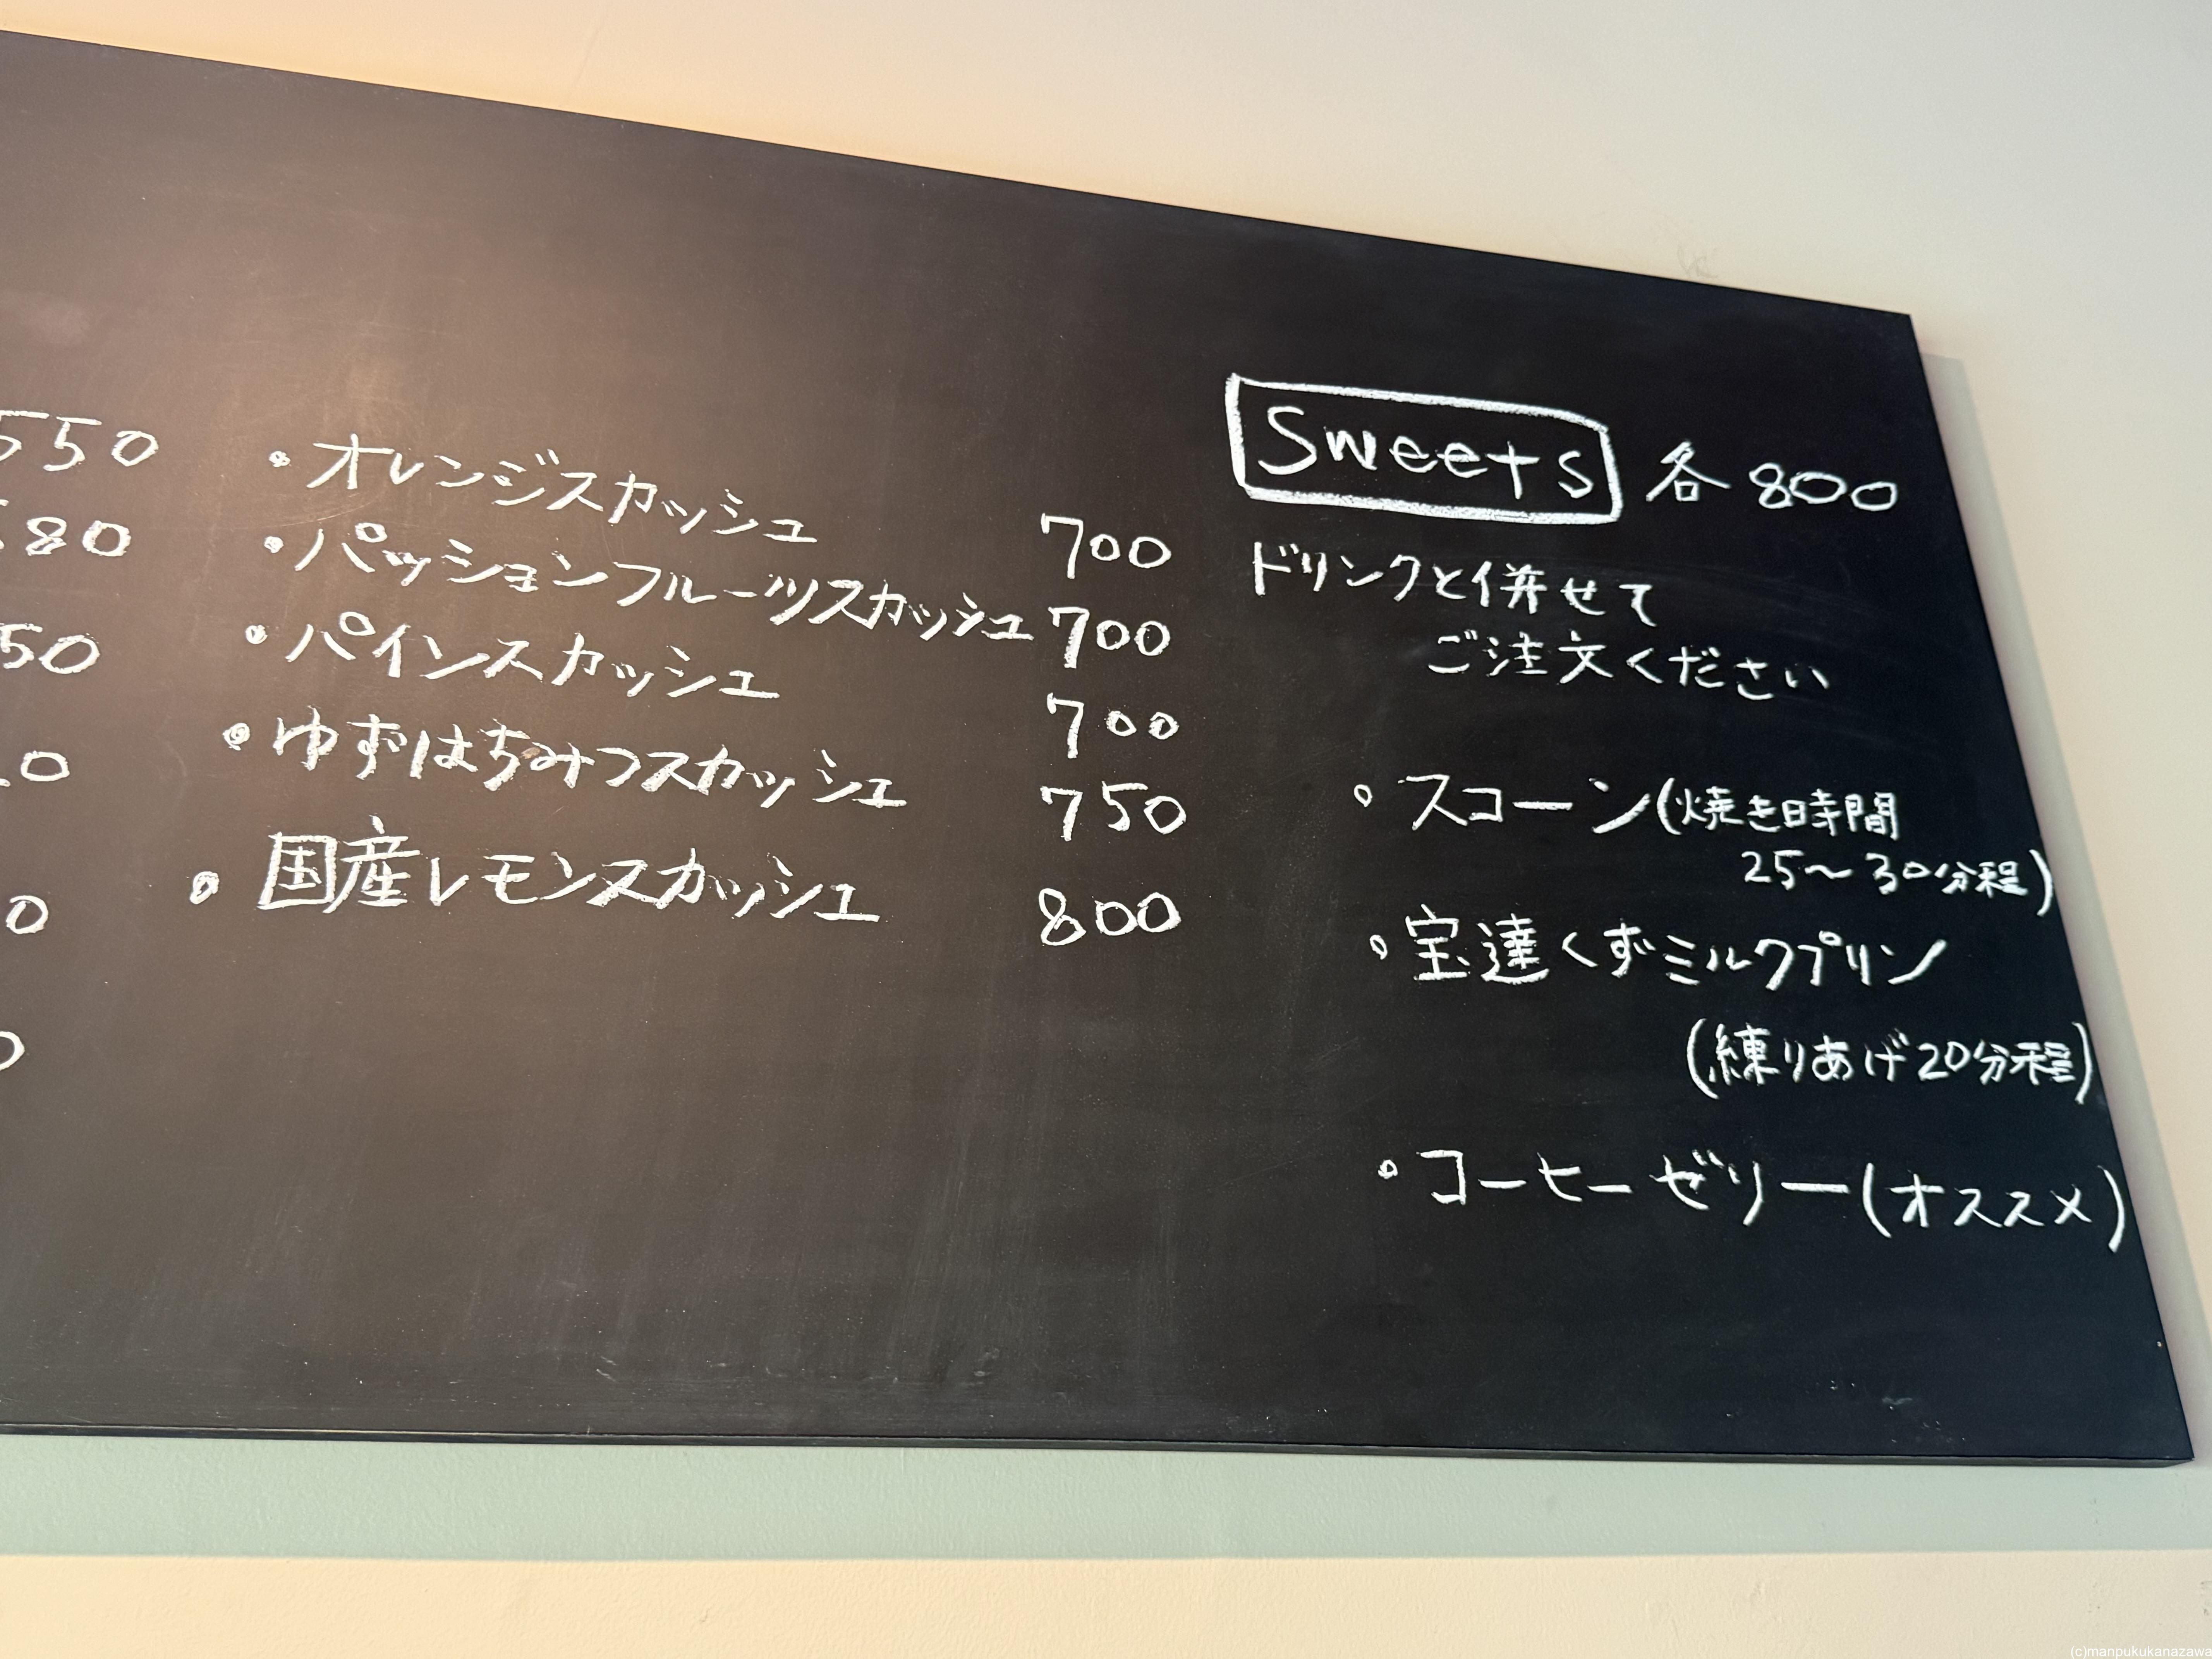 550
80
50
0
0
0
・オレンジスカッシュ 700
・パッションフルーツスカッシュ 700
・パインスカッシュ 700
・ゆずはちみつスカッシュ 750
・国産レモンスカッシュ 800
Sweets 各800
ドリンクと併せて
ご注文ください
・スコーン(焼き時間
25〜30分程)
・宝達くずミルクプリン
(練りあげ20分程)
・コーヒーゼリー(オススメ)
(c)manpukukanazawa